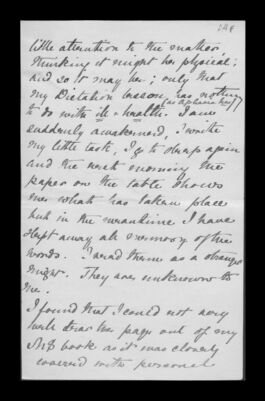 little attention to the matter
thinking it might be physical;
and so it may be; only that
my Dictation lesson has nothing
to do with ill-health. I am
suddenly awakened, I write
my little task, I go to sleep again
and the next morning the
paper on the table shows
me what has taken place
but in the meantime I have
slept away all memory of the
words. I read them as a stranger
might. They are unknown to
me.
I found that I could not very
well tear the page out of my
MS book as it was closely
covered with personal